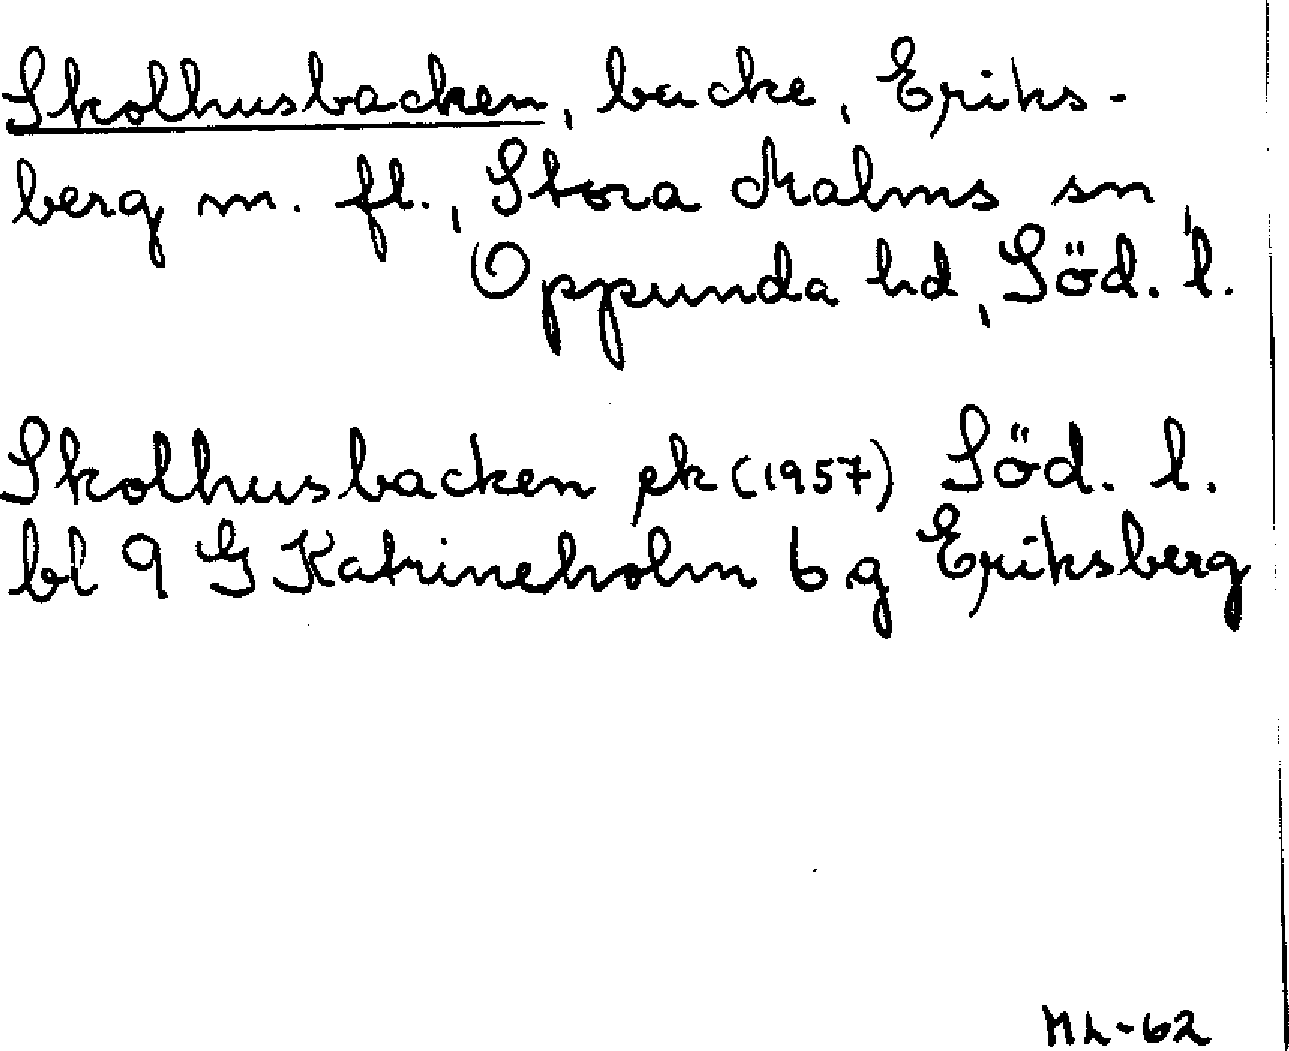 Skolhusbacken, backe, Eriks-
berg m. fl., Stora Malms sn,
Oppunda hd, Söd. l.
Skolhusbacken ek (1957) Söd. l.
bl 9 G Katrineholm 6 g Eriksberg
ML-62